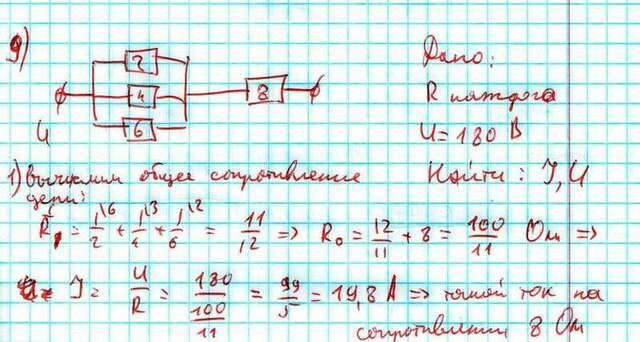 9)
2
4
6
8
U
Дано:
R каждого
U = 180 В
Найти: I, U
1) вычислим общее сопротивление
цепи:
1/R₁ = 1\6/2 + 1\3/4 + 1\2/6 = 11/12 => R₀ = 12/11 + 8 = 100/11 Ом =>
I = U/R = 180/(100/11) = 99/5 = 19,8 А => такой ток на
сопротивлении 8 Ом